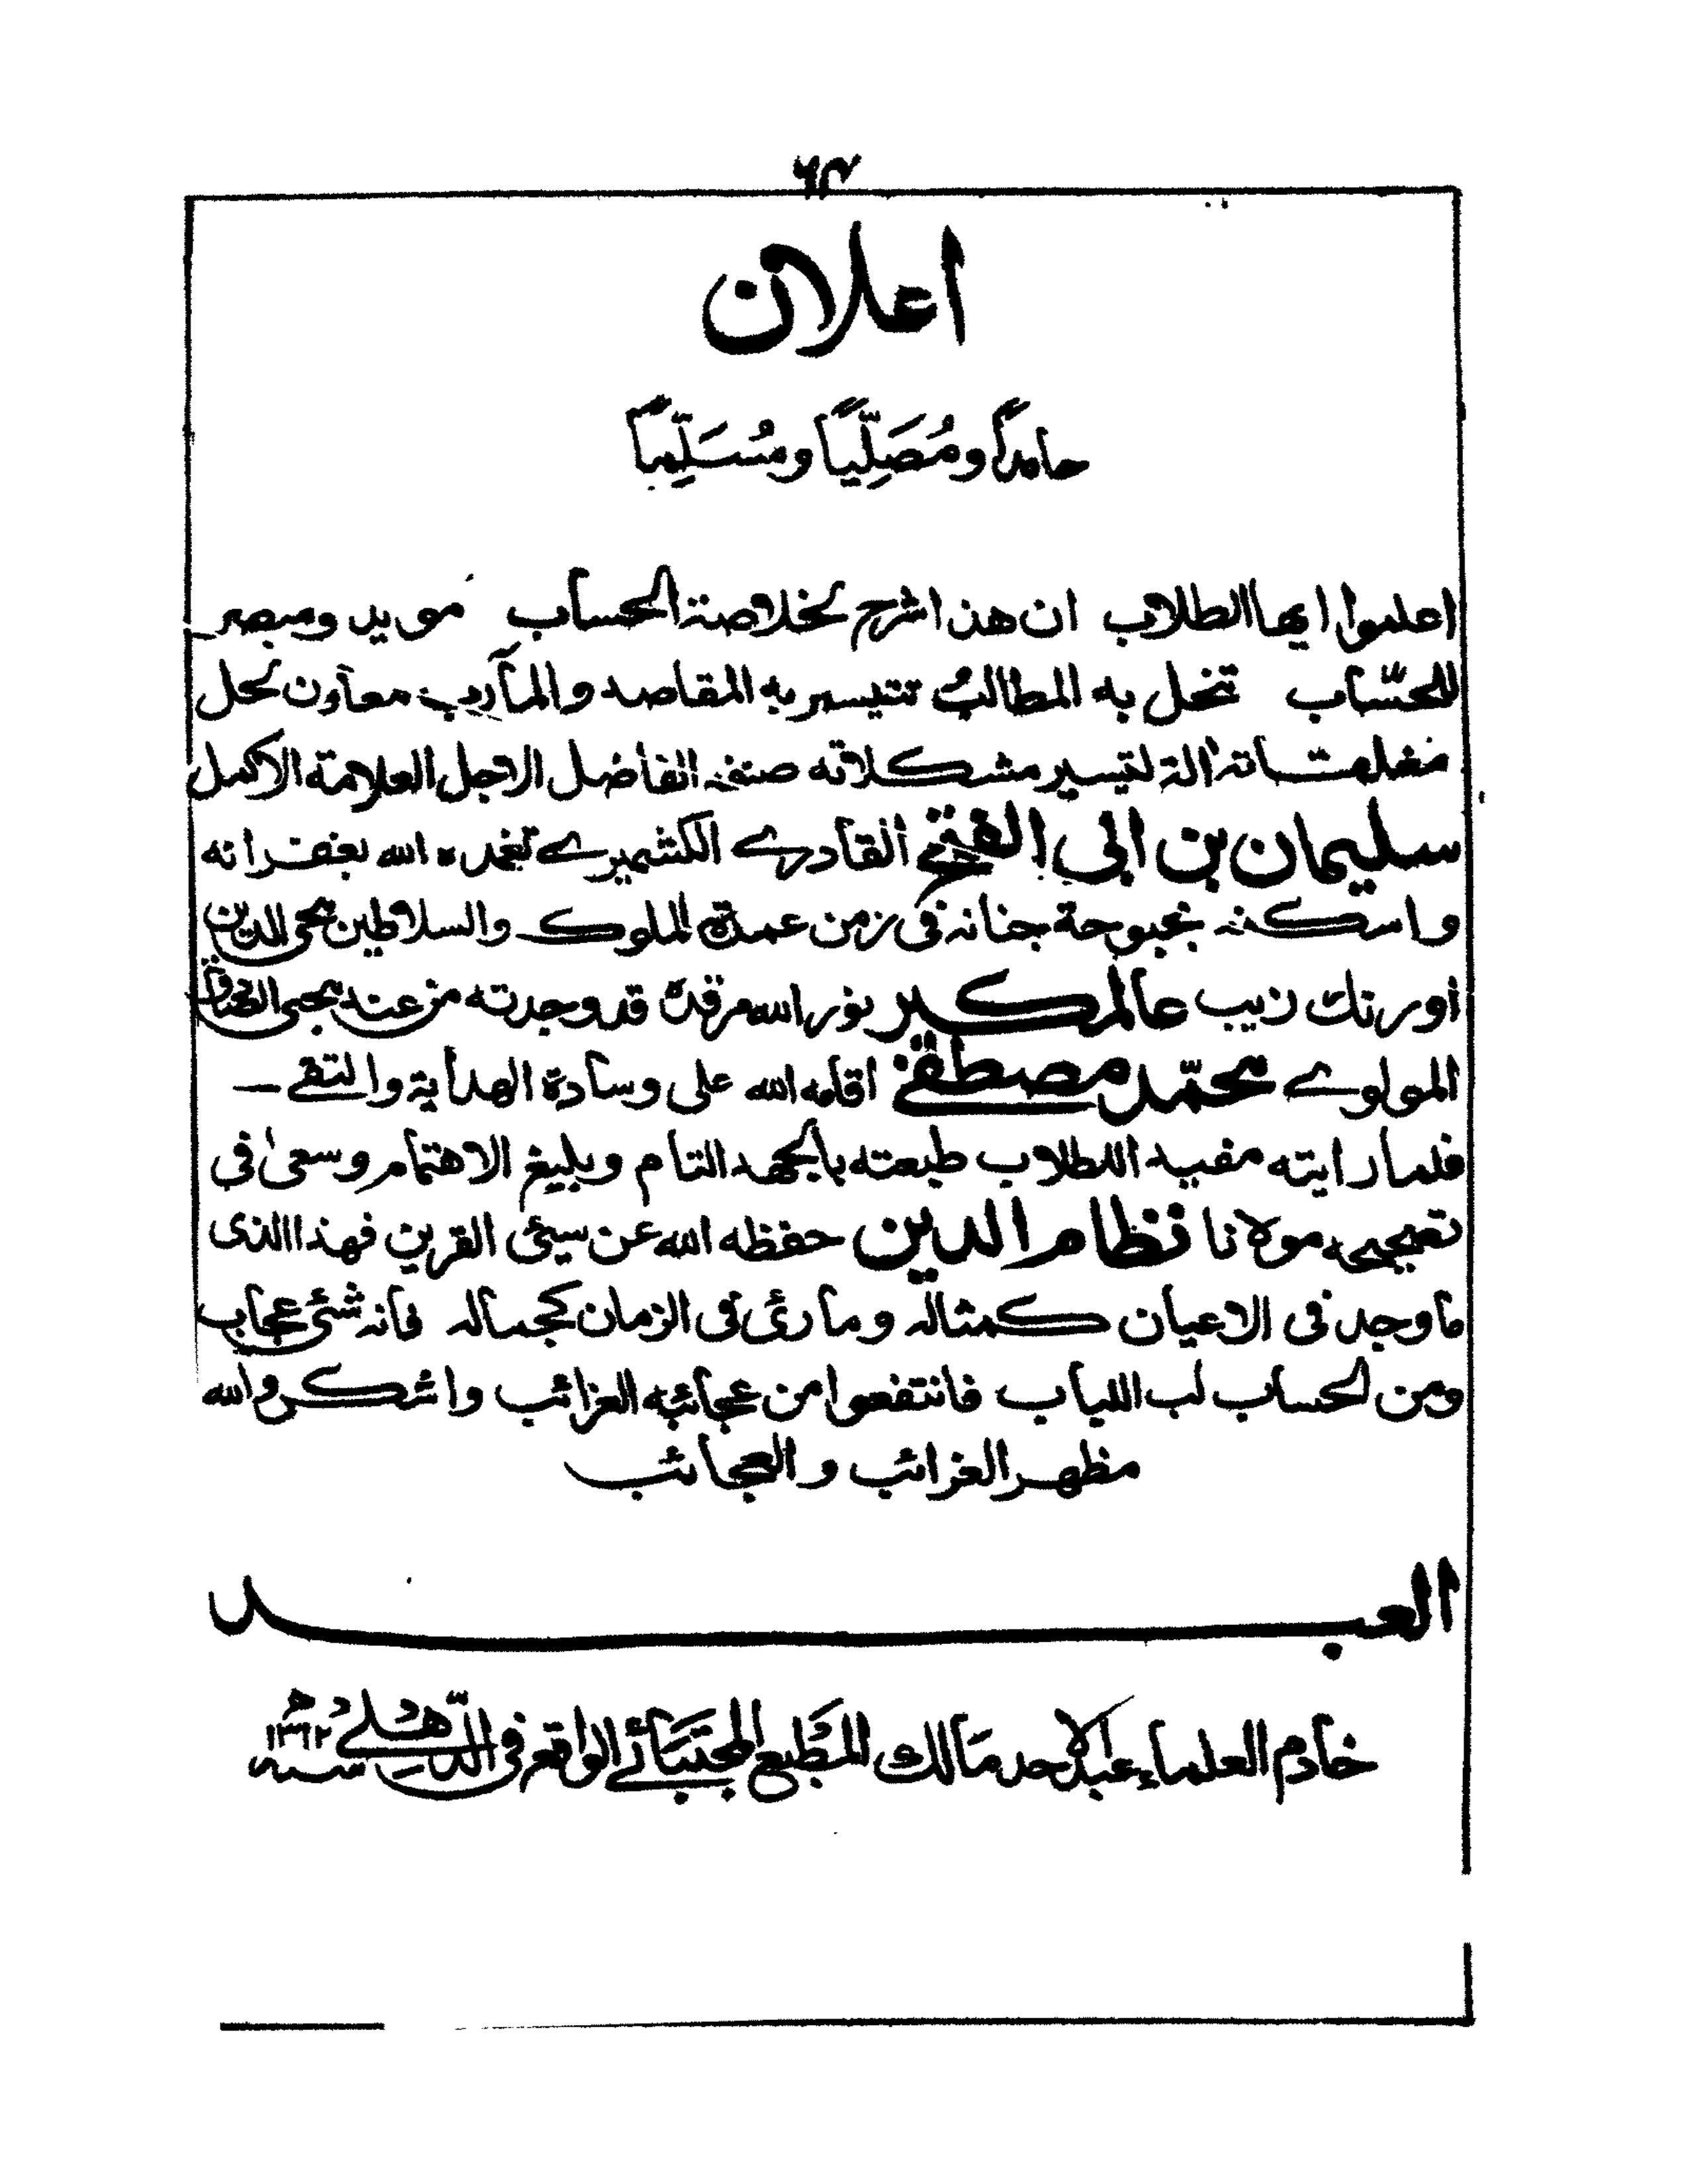 ٦٤
اعلان
حامداً ومُصَلِّیاً ومُسَلِّماً
اعلموا ایها الطلاب ان هذا شرح لخلاصة الحساب موید ومبصر
للحسّاب تنحل به المطالب تتیسر به المقاصد والمآرب معاون لحل
مغلقاته الة لتیسیر مشکلاته صنفه الفاضل الاجل العلامة الاکمل
سلیمان بن ابی الفتح القادرے الکشمیرے تغمده الله بغفرانه
واسکنه بحبوحة جنانه فی زمن عمدة الملوک والسلاطین محی الدین
اورنگ زیب عالمگیر نور الله مرقدہ قد وجدته من عند محبی
المولوے محمّد مصطفے اقامه الله علی وسادة الهدایة والتقے
فلما رایته مفید اللطلاب طبعته بالجهد التام وبلیغ الاهتمام وسعیٰ فی
تصحیحه مولانا نظام الدین حفظه الله عن سیئی القرین فهذا الذی
ما وجد فی الاعیان کمثاله وما رئی فی الزمان کجماله فانه شئی عجاب
ومن الحساب لب اللباب فانتفعوا من عجائبه الغرائب واشکروالله
مظهر الغرائب والعجائب
العبد
خادم العلماء عبدالاحد مالک المطبع المجتبائے الواقعہ فی الدّهلے سنه ١٣١٢ھ